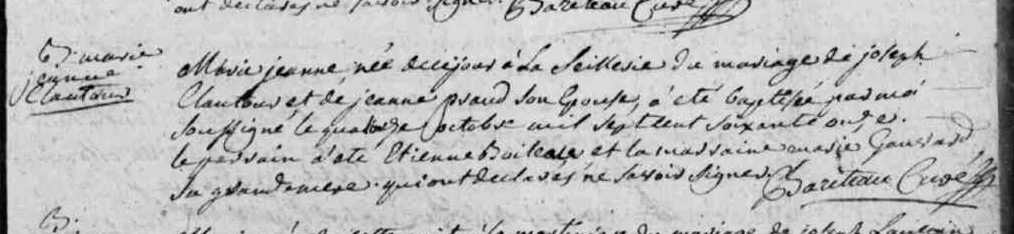 ont declarés ne savoir signer. Bariteau Curé
B. marie
jeanne
Clautour
Marie jeanne née de ce jour à La Seillerie du mariage de joseph
Clautour et de jeanne praud son Epouse, a été baptisée par moi
soussigné le quatorze octobre mil sept cent soixante onze.
le parrain a été Etienne Boileau et la marraine marie Gourard
sa grandemere. qui ont declarés ne savoir signer. Bariteau Curé
B.
du mariage de joseph